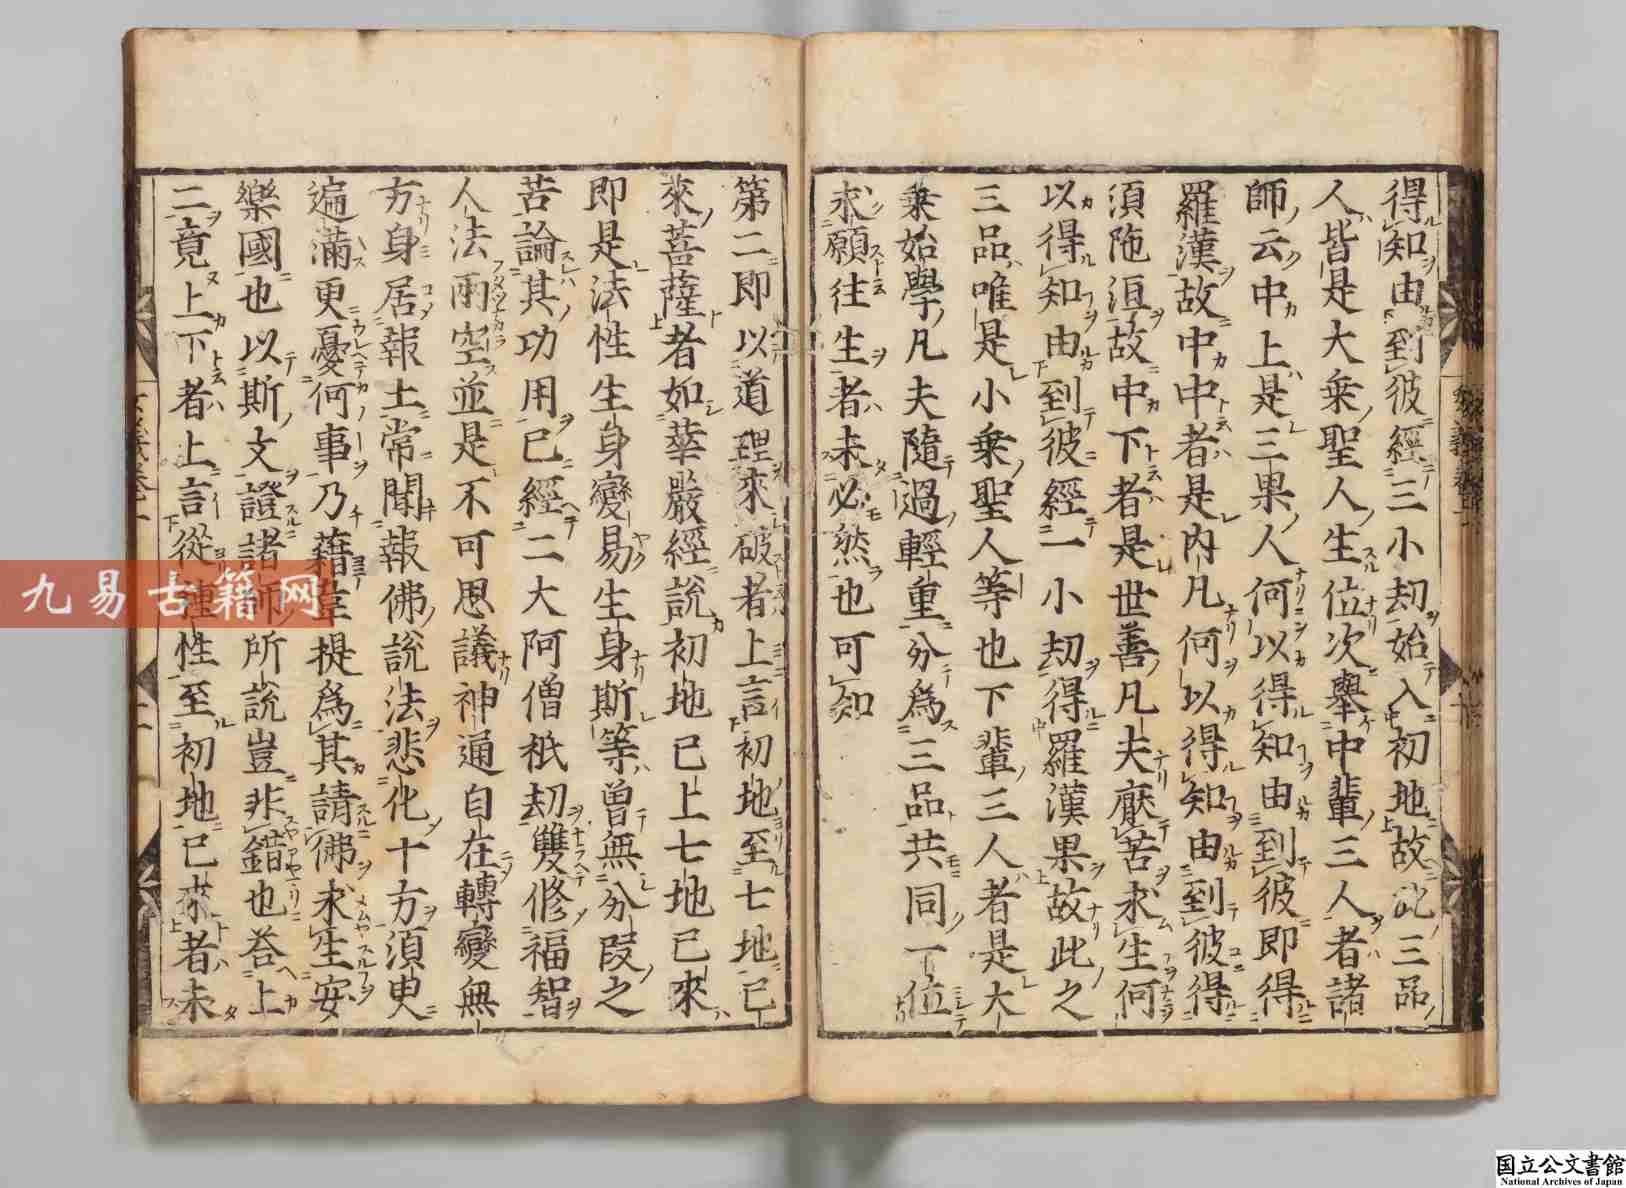 得知由到彼經三小劫始入初地故此三品
人皆是大乘聖人生位次舉中輩三人者諸
師云中上是三果人何以得知由到彼即得
羅漢故中中者是內凡何以得知由到彼得
須陁洹故中下者是世善凡夫厭苦求生何
以得知由到彼經一小劫得羅漢果故此之
三品唯是小乘聖人等也下輩三人者是大
乘始學凡夫隨過輕重分爲三品共同一位
求願往生者未必然也可知
第二即以道理來破者上言初地至七地已
來菩薩者如華嚴經說初地已上七地已來
即是法性生身變易生身斯等曾無分段之
苦論其功用已經二大阿僧祇劫雙修福智
人法兩空並是不可思議神通自在轉變無
方身居報土常聞報佛說法悲化十方須臾
遍滿更憂何事乃藉韋提爲其請佛求生安
樂國也以斯文證諸師所說豈非錯也荅上
二竟上下者上言從種性至初地已來者未
九易古籍网
国立公文書館
National Archives of Japan